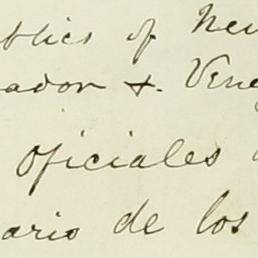 blics of New
ador &. Vene
oficiales
ario de los